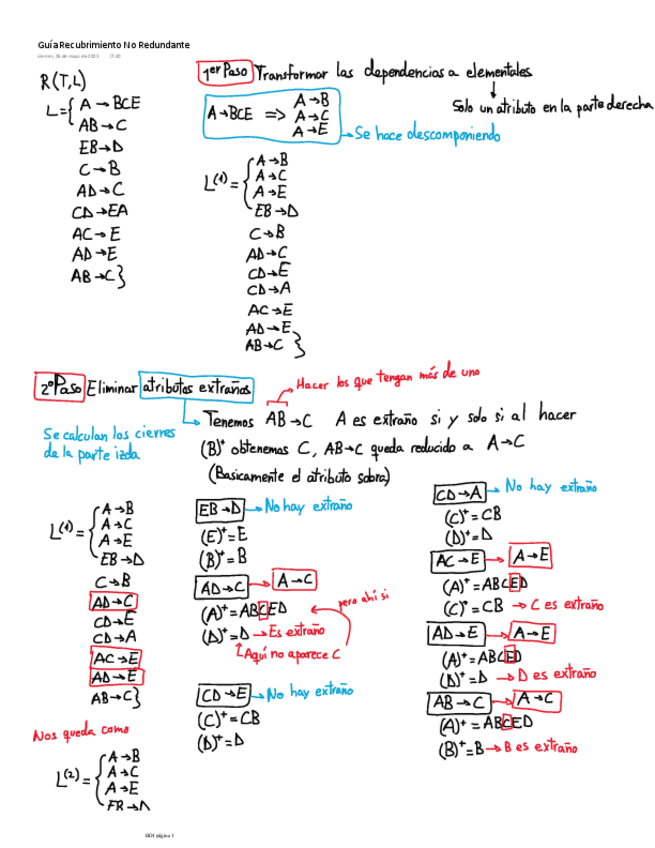 Guía Recubrimiento No Redundante
viernes, 26 de mayo de 2023 17:30
R(T,L)
L={ A→BCE
AB→C
EB→D
C→B
AD→C
CD→EA
AC→E
AD→E
AB→C}
1er Paso Transformar las dependencias a elementales
Solo un atributo en la parte derecha
A→BCE => A→B
A→C
A→E
Se hace descomponiendo
L(1) = { A→B
A→C
A→E
EB→D
C→B
AD→C
CD→E
CD→A
AC→E
AD→E
AB→C }
2º Paso Eliminar atributos extraños
Hacer los que tengan más de uno
Se calculan los cierres
de la parte izda
Tenemos AB→C A es extraño si y solo si al hacer
(B)+ obtenemos C, AB→C queda reducido a A→C
(Basicamente el atributo sobra)
L(1) = { A→B
A→C
A→E
EB→D
C→B
AD→C
CD→E
CD→A
AC→E
AD→E
AB→C}
Nos queda como
L(2) = { A→B
A→C
A→E
EB→D
EB→D → No hay extraño
(E)+ = E
(B)+ = B
AD→C → A→C
(A)+ = ABCED pero ahí si
(D)+ = D → Es extraño
Aquí no aparece C
CD→E → No hay extraño
(C)+ = CB
(D)+ = D
CD→A → No hay extraño
(C)+ = CB
(D)+ = D
AC→E → A→E
(A)+ = ABCED
(C)+ = CB → C es extraño
AD→E → A→E
(A)+ = ABCED
(D)+ = D → D es extraño
AB→C → A→C
(A)+ = ABCED
(B)+ = B → B es extraño